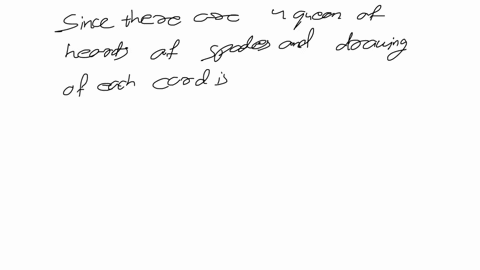 Since there are 4 queen of
hearts of spades and drawing
of each card is